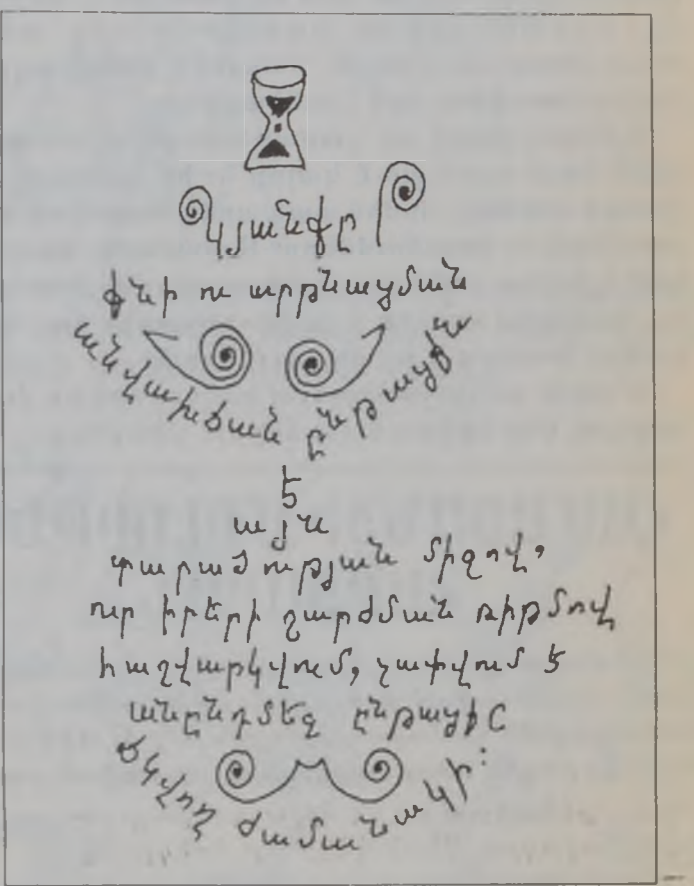 Կյանքը
քնի ու արթնացման
անվախճան ընթացքն
է
այն
տարածության միջով,
ուր իրերի շարժման ռիթմով
հաշվարկվում, չափվում է
անընդմեջ ընթացքը
ճկվող ժամանակի: